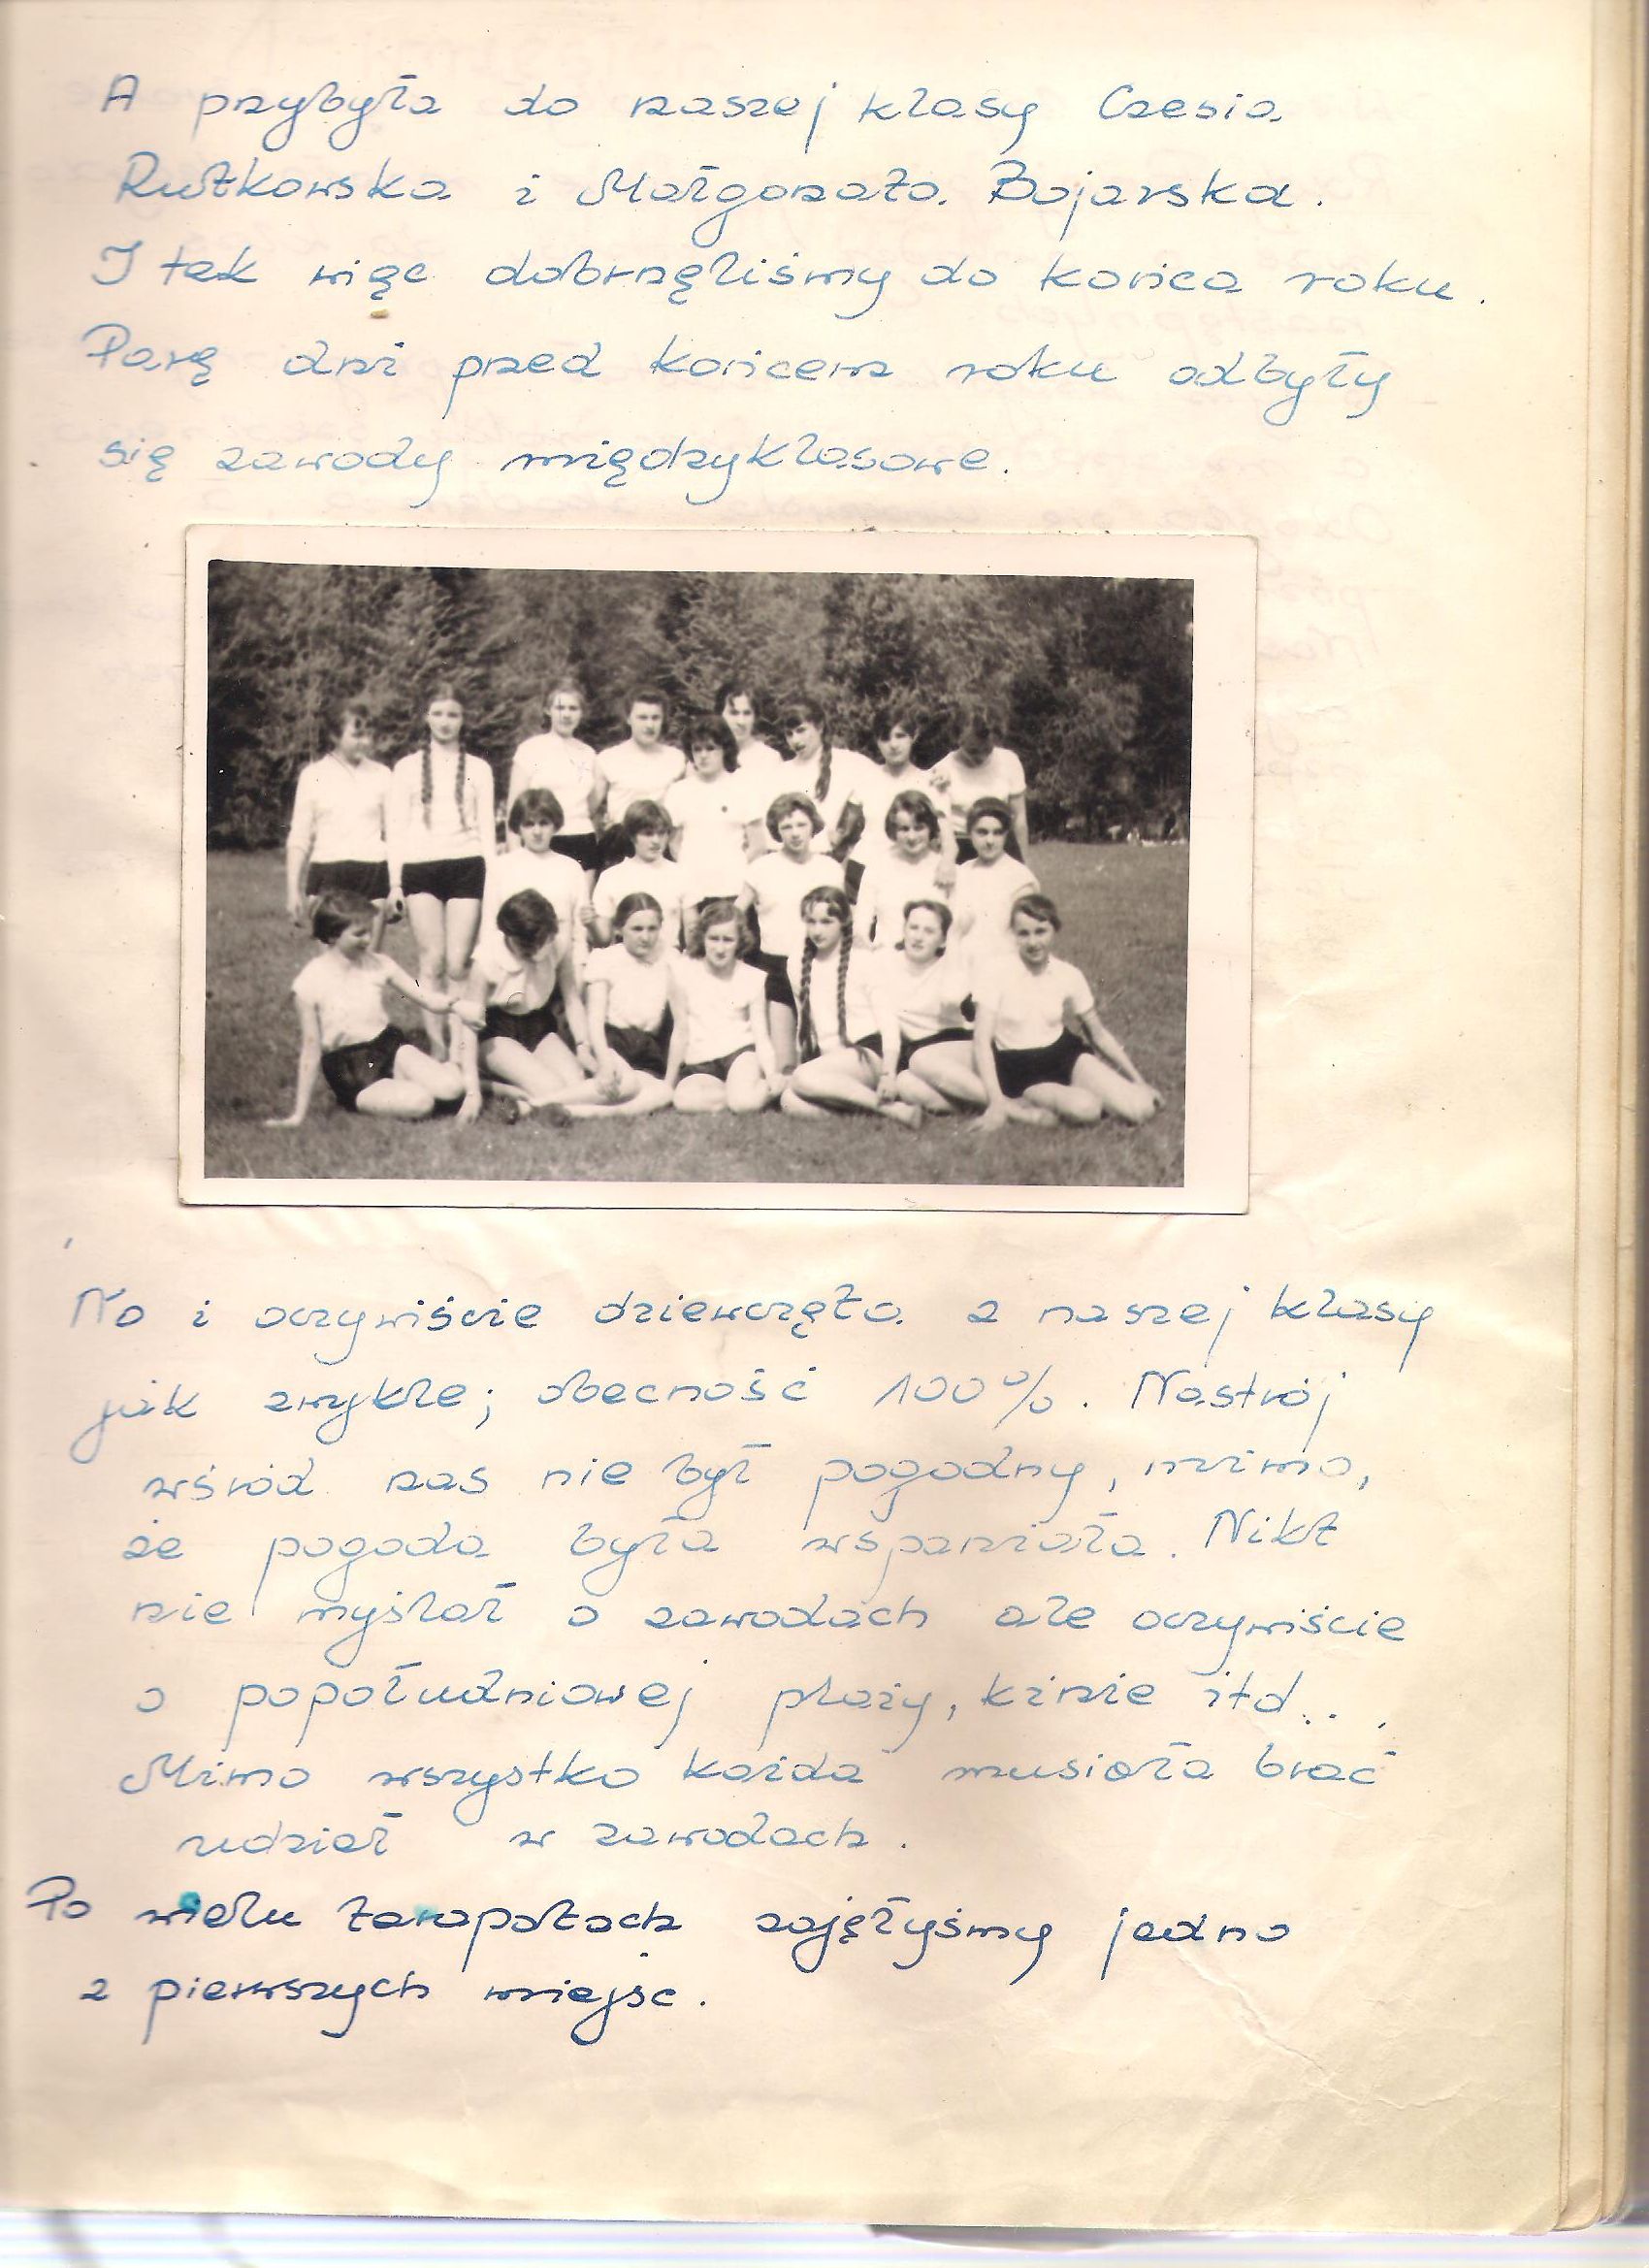 A przybyła do naszej klasy Czesia
Rutkowska i Małgorzata Bojarska.
I tak więc dobrnęliśmy do końca roku.
Parę dni przed końcem roku odbyły
się zawody międzyklasowe.
No i oczywiście dziewczęta z naszej klasy
jak zwykle; obecność 100%. Nastrój
wśród nas nie był pogodny, mimo,
że pogoda była wspaniała. Nikt
nie myślał o zawodach ale oczywiście
o popołudniowej plaży, kinie itd...
Mimo wszystko każda musiała brać
udział w zawodach.
Po wielu tarapatach zajęłyśmy jedno
z pierwszych miejsc.